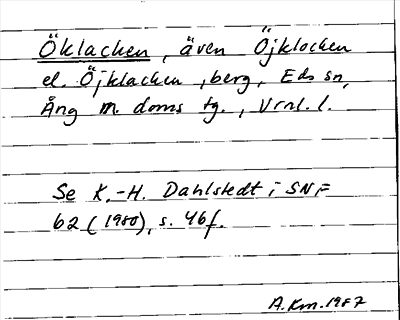 Öklacken, även Öjklocken
el. Öjklacken, berg, Eds sn,
Ång m. doms tg., Vrnl. l.
Se K.-H. Dahlstedt i SNF
62 (1980), s. 46f.
A.Km.1987